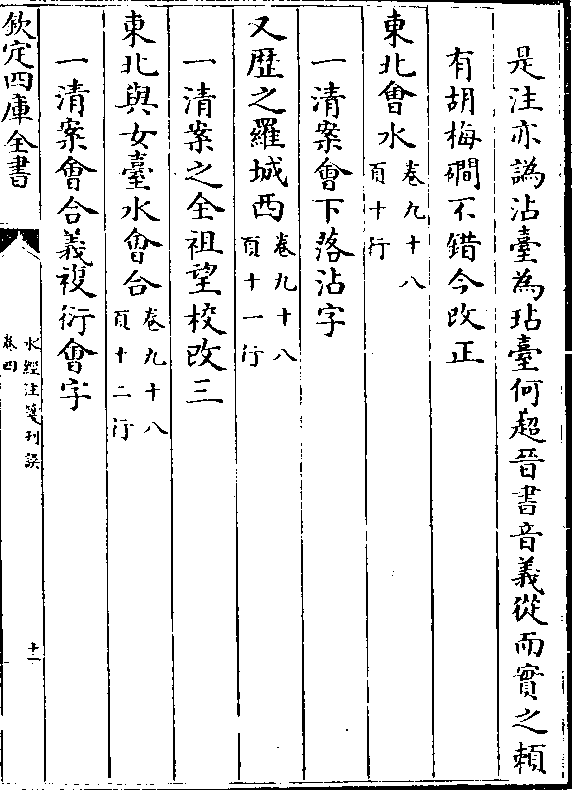 是注亦譌沾臺為玷臺何超晉書音義從而實之頼
有胡梅磵不錯今改正
東北會水卷九十八頁十行
一清案會下落沾字
又歴之羅城西卷九十八頁十一行
一清案之全祖望校改三
東北與女臺水會合卷九十八頁十二行
一清案會合義複衍會字
欽定四庫全書
水經注箋刋誤
卷四
十一